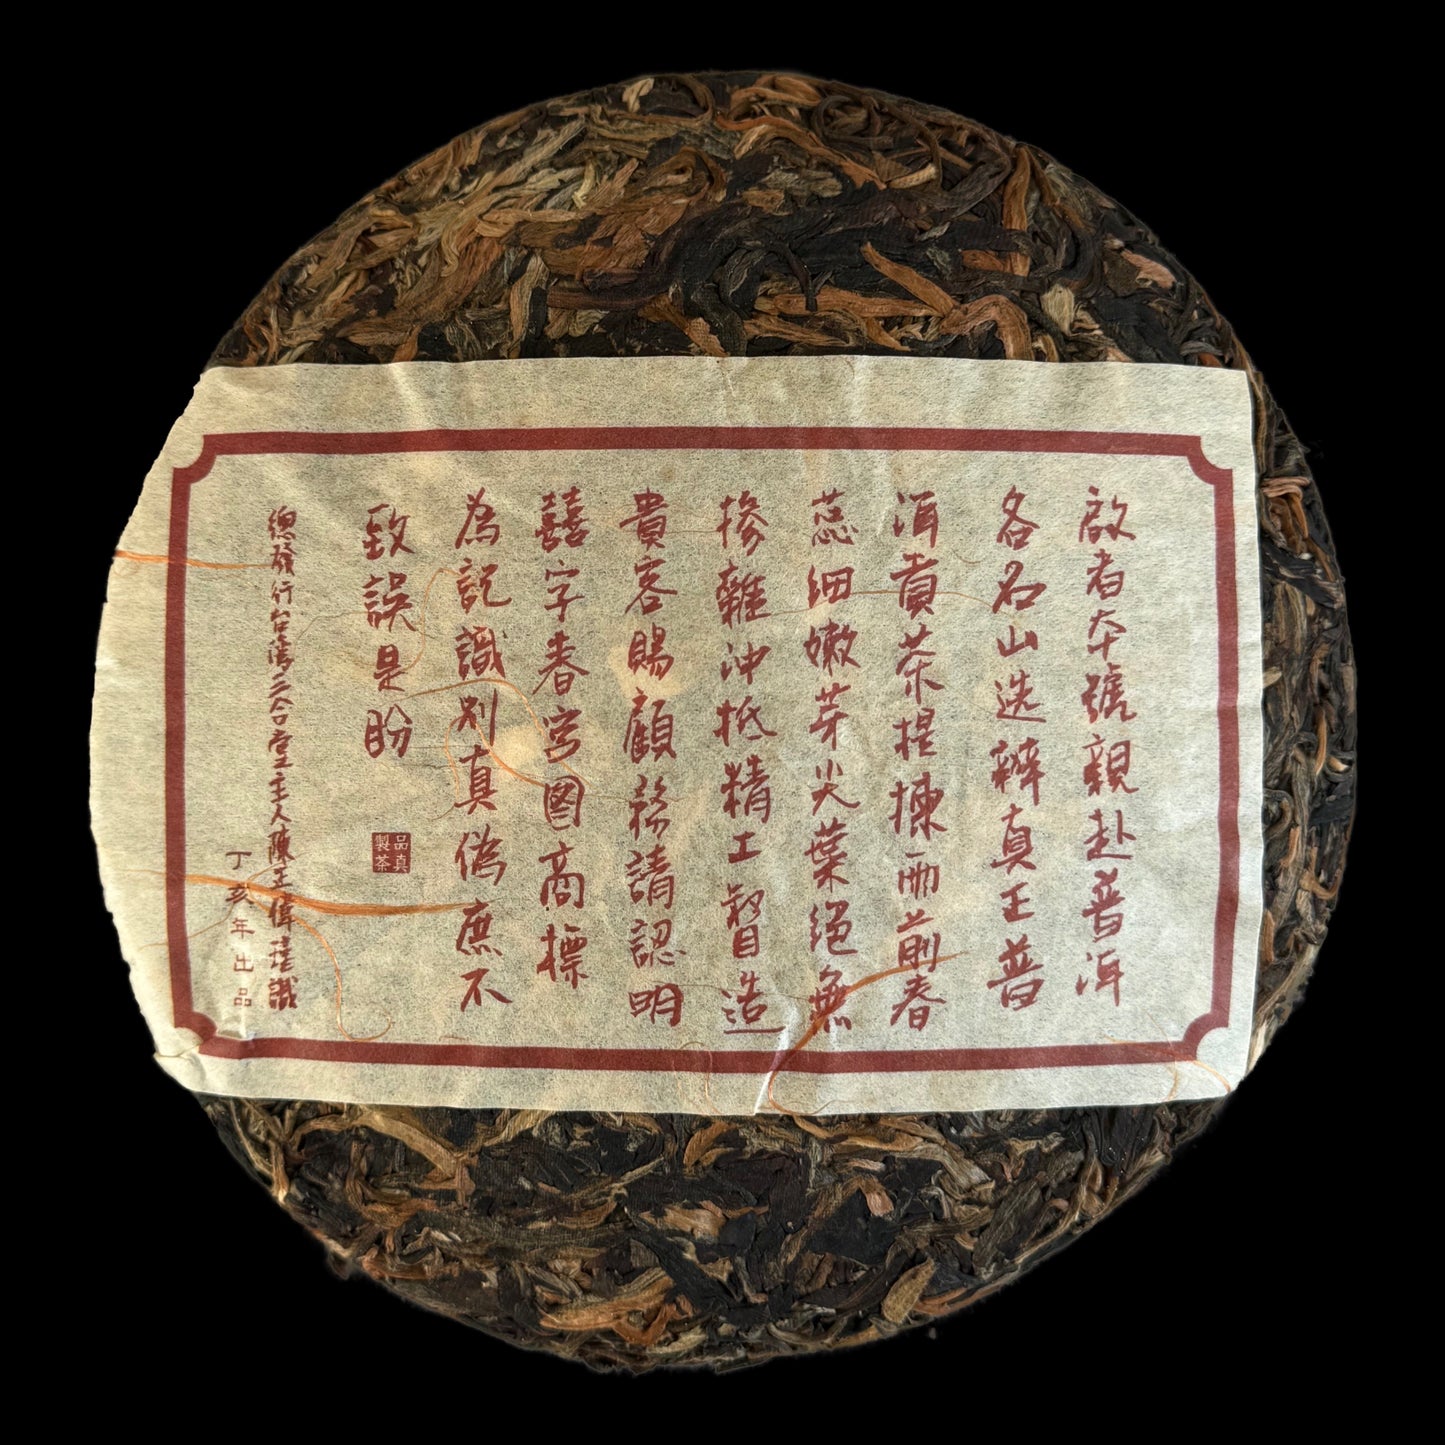 啟者本號親赴普洱
各名山选辦真正普
洱貢茶提揀雨前春
蕊细嫩芽尖葉絕無
摻雜沖抵精工督造
貴客賜顧務請認明
囍字春宮圖商標
為記識别真偽庶不
致誤是盼
品真製茶
總發行台灣三合堂主人陳
丁亥年出品